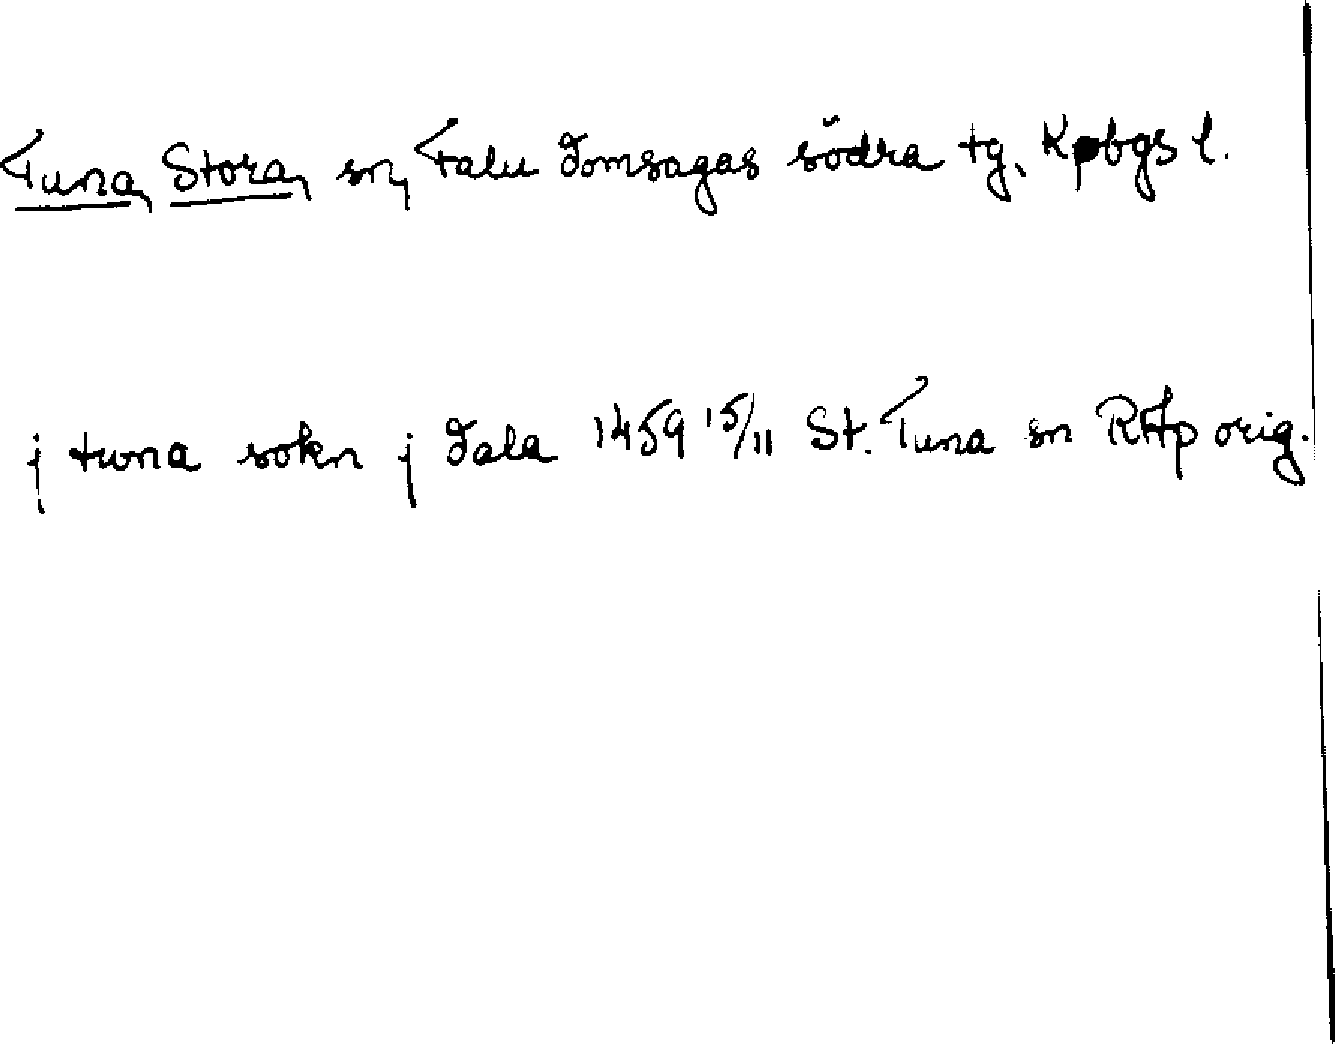 Tuna, Stora, sn, Falu domsagas södra tg, Kpbgs l.
j twna sokn j dala 1459 15/11 St. Tuna sn RAp orig.